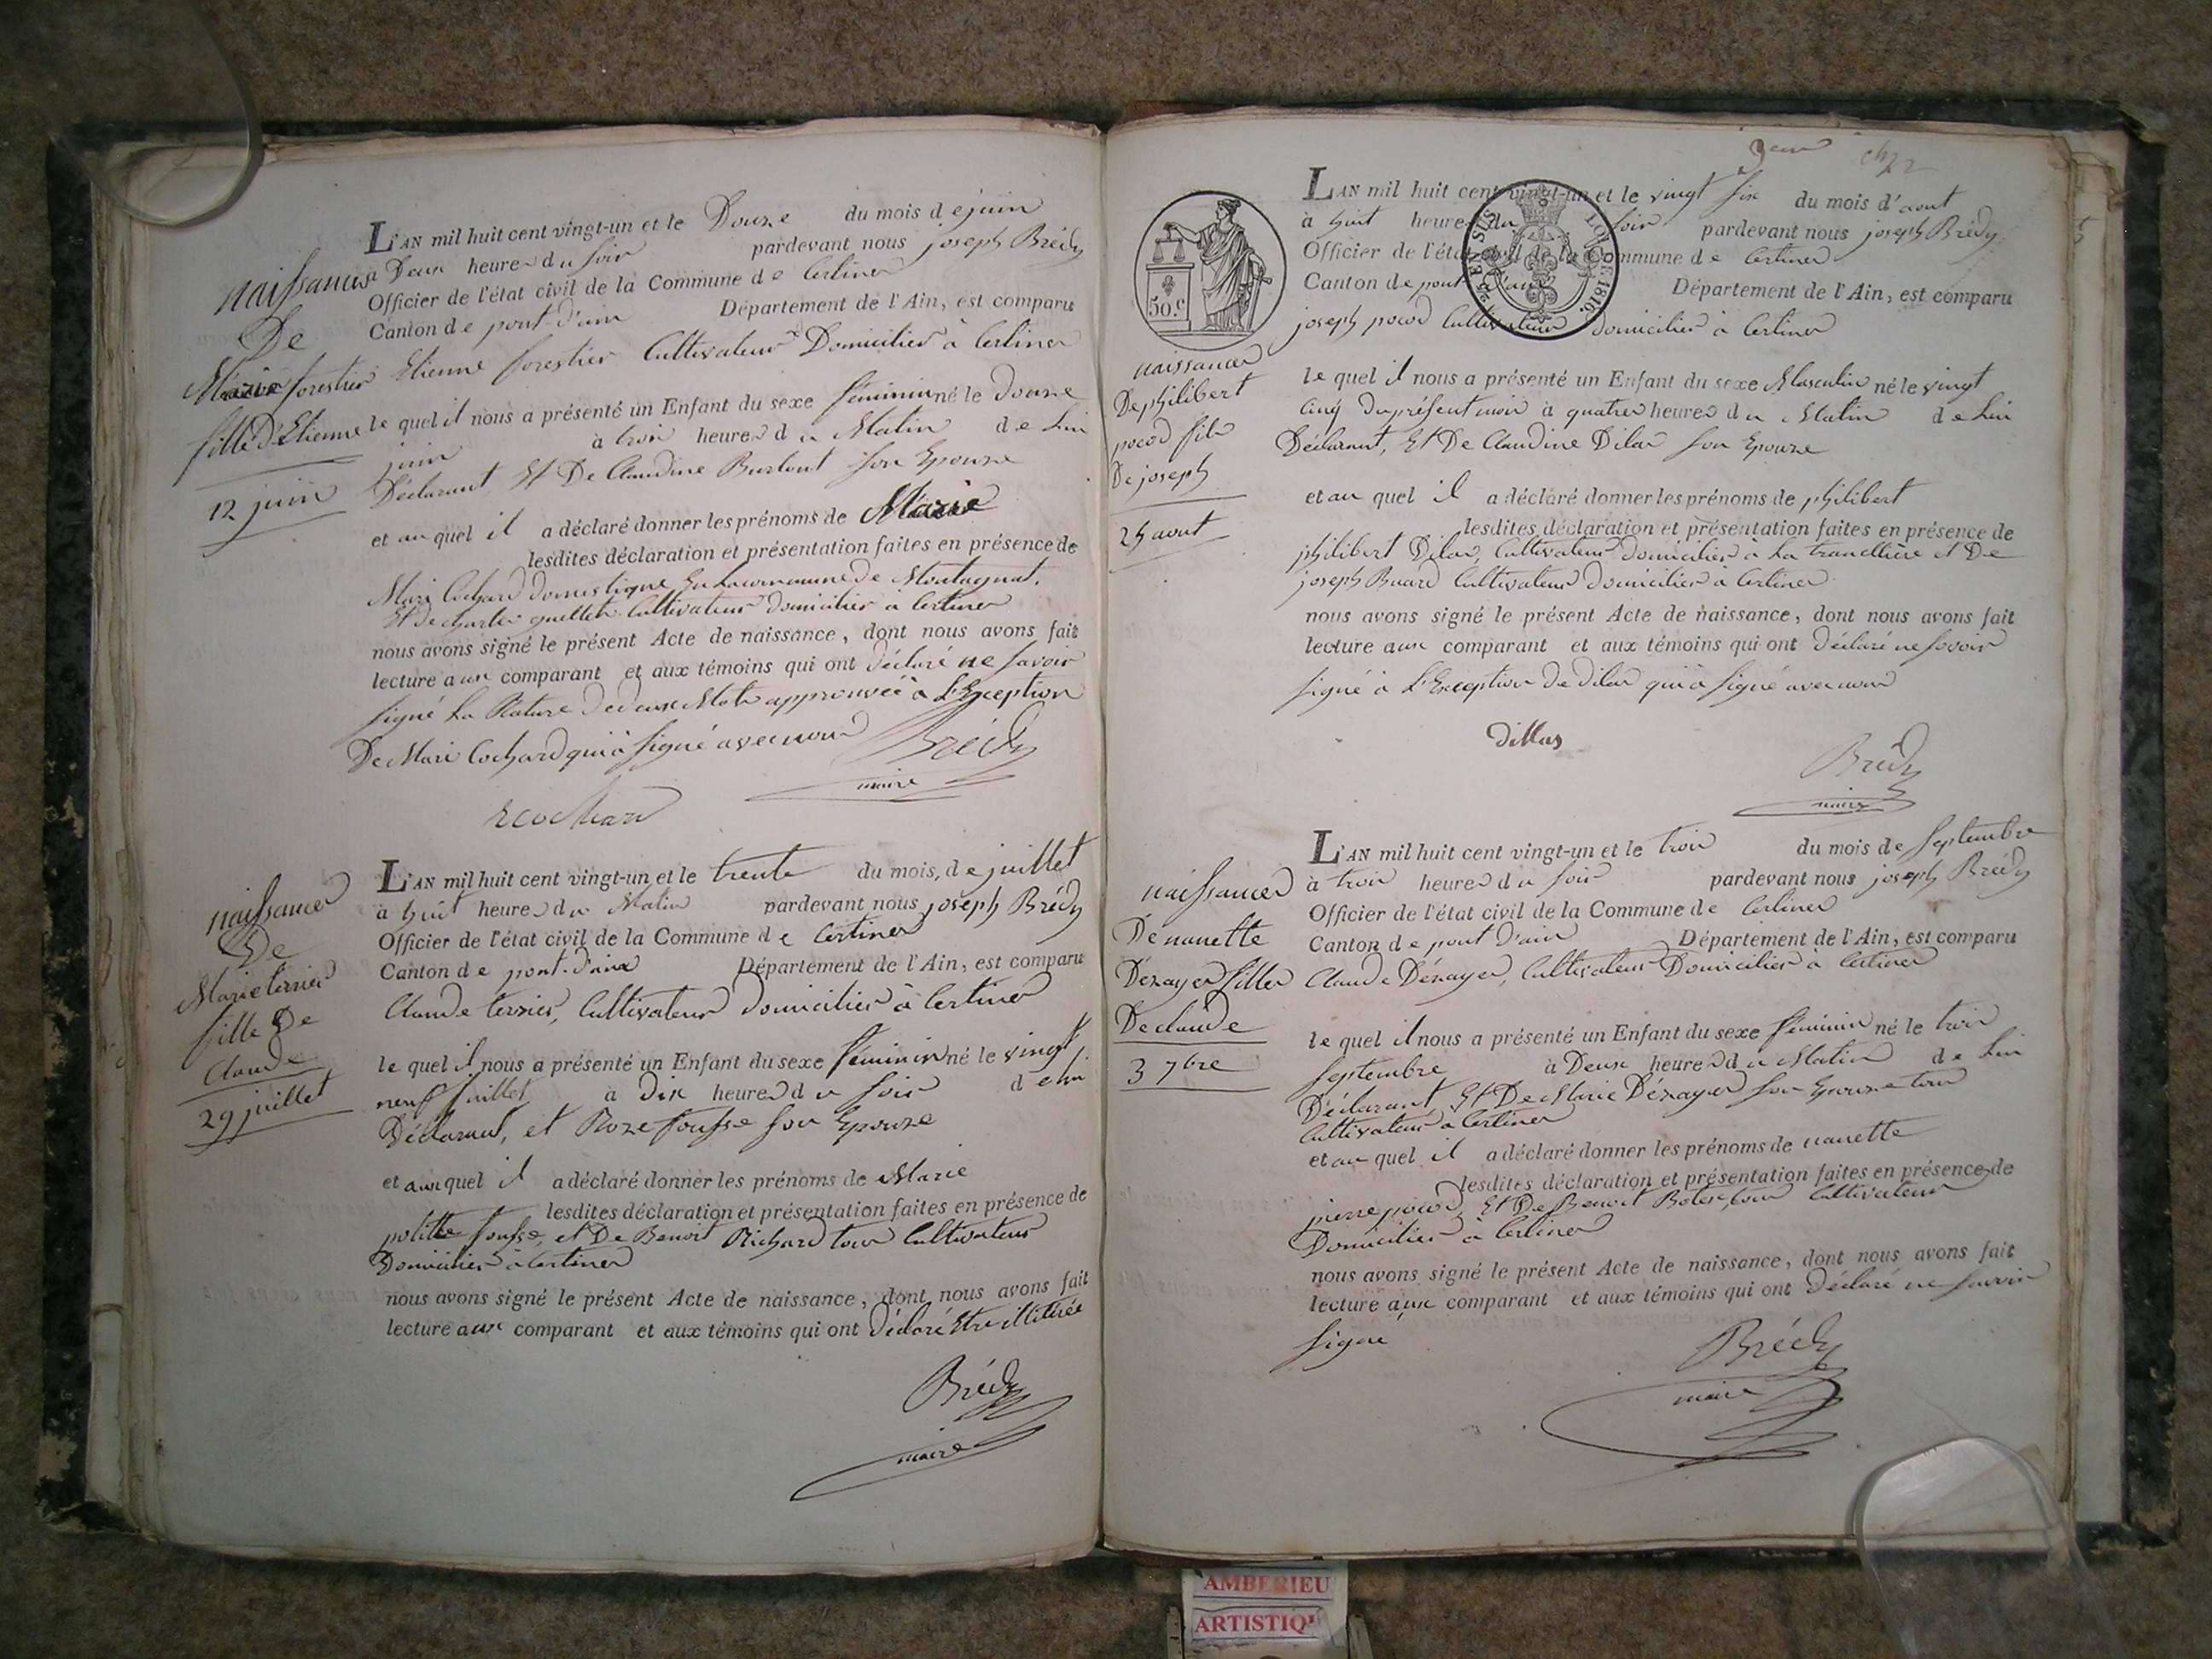 naissance
De
Marie forestier
fille d'Etienne
12 juin
L'AN mil huit cent vingt-un et le Douze du mois de juin
à Deux heures du soir pardevant nous joseph Brédy
Officier de l'état civil de la Commune de Certines
Canton de pont-d'ain Département de l'Ain, est comparu
Etienne forestier Cultivateur Domicilier à Certines
le quel il nous a présenté un Enfant du sexe féminin né le douze
juin à trois heures du Matin de lui
Déclarant Et De Claudine Burlout son Epouze
et au quel il a déclaré donner les prénoms de Marie
lesdites déclaration et présentation faites en présence de
Mari Cochard domestique En la commune de Montagnat.
Et de charles guillet Cultivateur domicilier à Certines
nous avons signé le présent Acte de naissance, dont nous avons fait
lecture aux comparant et aux témoins qui ont déclaré ne savoir
signé la Rature de deux Mots approuvée à L'Exception
De Mari Cochard qui à signé avec nous
Brédy
maire
naissance
De
Marie terrier
fille De
Claude
29 juillet
L'AN mil huit cent vingt-un et le trente du mois, de juillet
à huit heures du Matin pardevant nous joseph Brédy
Officier de l'état civil de la Commune de Certines
Canton de pont-d'ain Département de l'Ain, est comparu
Claude terrier, Cultivateur domicilier à Certines
le quel il nous a présenté un Enfant du sexe féminin né le vingt
neuf juillet à Dix heures du soir de lui
Déclarant, et Roze fousse son Epouze
et aux quel il a déclaré donner les prénoms de Marie
lesdites déclaration et présentation faites en présence de
politte fousse, et De Benoit Richard tous Cultivateurs
Domicilier à Certines
nous avons signé le présent Acte de naissance, dont nous avons fait
lecture aux comparant et aux témoins qui ont déclaré Etre illitérée
Brédy
maire
50.c
LOI DE 1816.
naissance
De philibert
pocod fils
De joseph
25 aout
L'AN mil huit cent vingt-un et le vingt six du mois d'aout
à huit heures du soir pardevant nous joseph Brédy
Officier de l'état civil de la Commune de Certines
Canton de pont d'ain Département de l'Ain, est comparu
joseph pocod Cultivateur domicilier à Certines
le quel il nous a présenté un Enfant du sexe Masculin né le vingt
cinq du présent mois à quatre heures du Matin de lui
Déclarant, Et De Claudine Dilas son Epouze
et au quel il a déclaré donner les prénoms de philibert
lesdites déclaration et présentation faites en présence de
philibert Dilas, Cultivateur domicilier à la tranclière et De
joseph Buard Cultivateur domicilier à Certines
nous avons signé le présent Acte de naissance, dont nous avons fait
lecture aux comparant et aux témoins qui ont déclaré ne savoir
signé à L'Exception de dilas qui à signé avec nous
dillas
Brédy
maire
naissance
De nanette
Dézayer filles
De claude
3 7bre
L'AN mil huit cent vingt-un et le trois du mois de septembre
à trois heures du soir pardevant nous joseph Brédy
Officier de l'état civil de la Commune de Certines
Canton de pont D'ain Département de l'Ain, est comparu
Claude Dézayer, Cultivateur Domicilier à Certines
le quel il nous a présenté un Enfant du sexe féminin né le trois
septembre à Deux heures du Matin de lui
Déclarant, Et De Marie Dézayer son Epouze tous
Cultivateur à Certines
et au quel il a déclaré donner les prénoms de nanette
lesdites déclaration et présentation faites en présence de
pierre pocod, Et De Benoit tous Cultivateurs
Domicilier à Certines
nous avons signé le présent Acte de naissance, dont nous avons fait
lecture aux comparant et aux témoins qui ont déclaré ne savoir
signé
Brédy
maire
AMBERIEU
ARTISTIQU